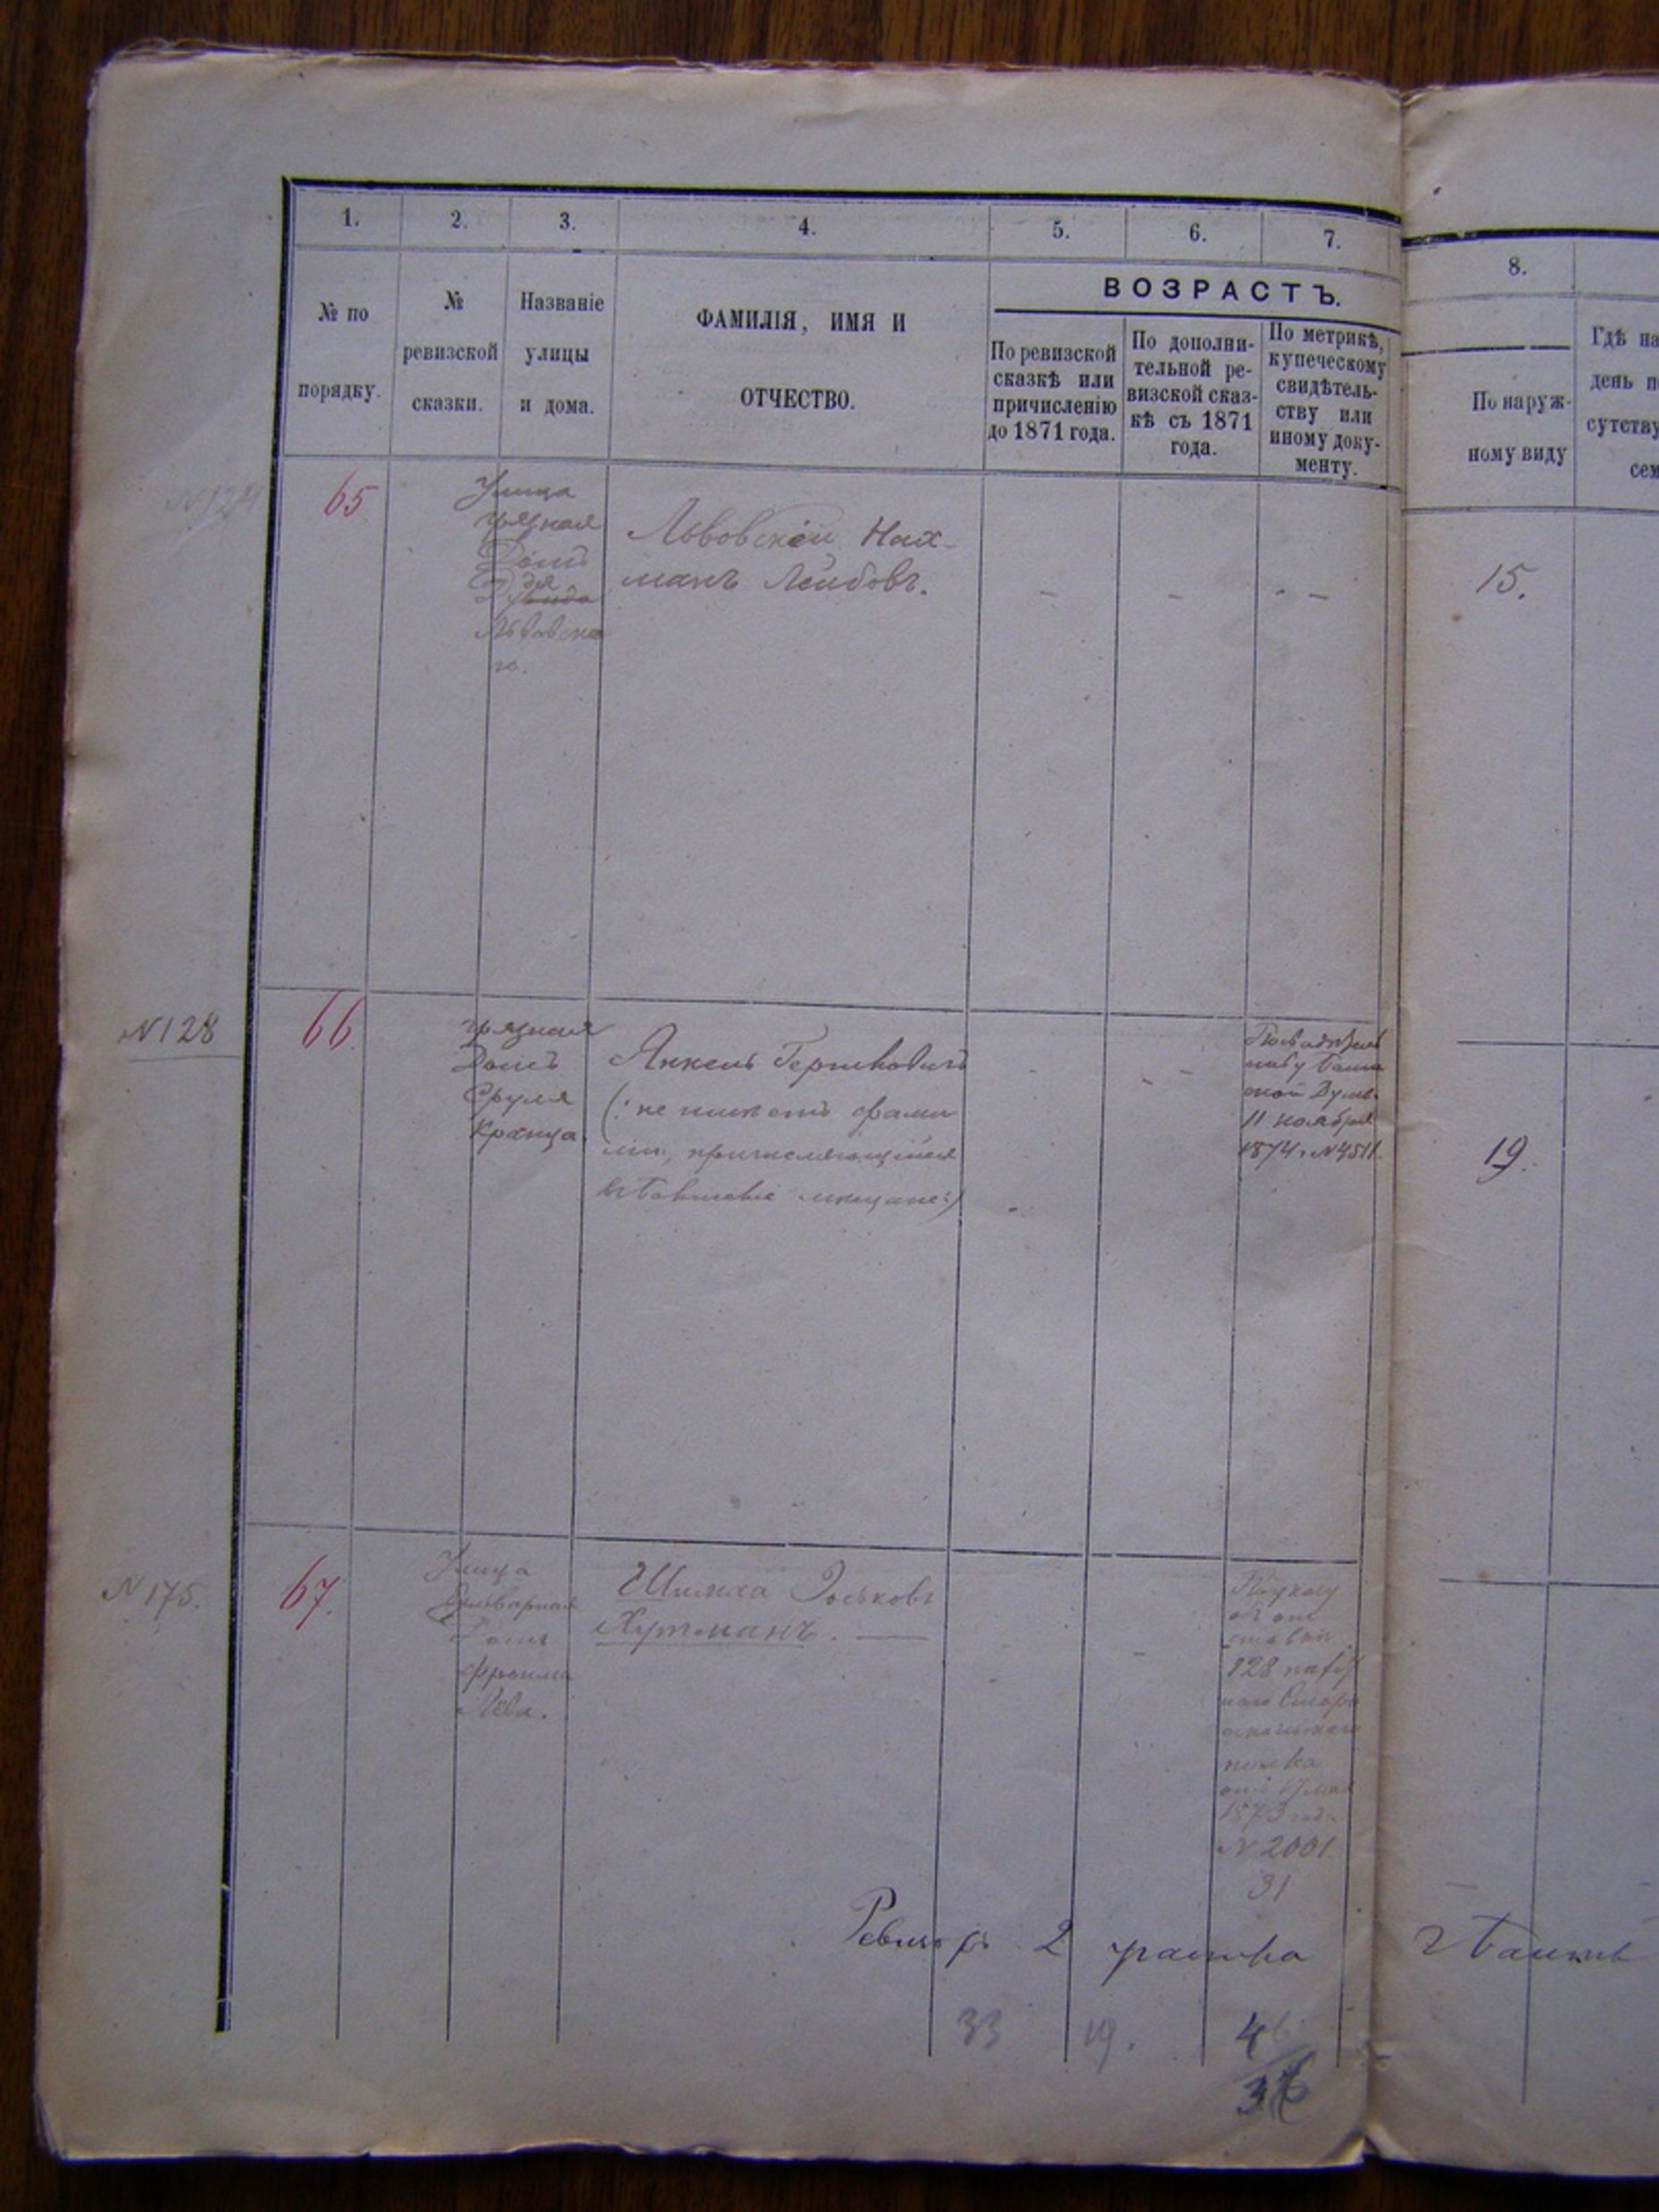 1.
2.
3.
4.
5.
6.
7.
8.
№ по
порядку.
№
ревизской
сказки.
Названіе
улицы
и дома.
ФАМИЛІЯ, ИМЯ И
ОТЧЕСТВО.
ВОЗРАСТЪ.
По ревизской
сказкѣ или
причисленію
до 1871 года.
По дополни-
тельной ре-
визской сказ-
кѣ съ 1871
года.
По метрикѣ,
купеческому
свидѣтель-
ству или
иному доку-
менту.
По наруж-
ному виду
Гдѣ на
день п
сутству
сем
65
Улица
Грязная
Домъ
Львовска
го.
Львовскій Нах-
манъ Лейбовъ.
15.
N 128
66.
Грязная
Домъ
Сруля
Кранца
Янкель Гершковичъ
(: не имѣетъ фами
ліи, причисляющійся
мещане:)
ской Думы
11 ноября
1874 г N 4511.
19.
N 175.
67.
Улица
Домъ
Фроима
Лева.
Шимха Іоськовъ
Хутманъ.
По указу
объ от
ставкѣ
полка
отъ 17 мая
1873 года
N 2001.
31
2 участка
33
19.